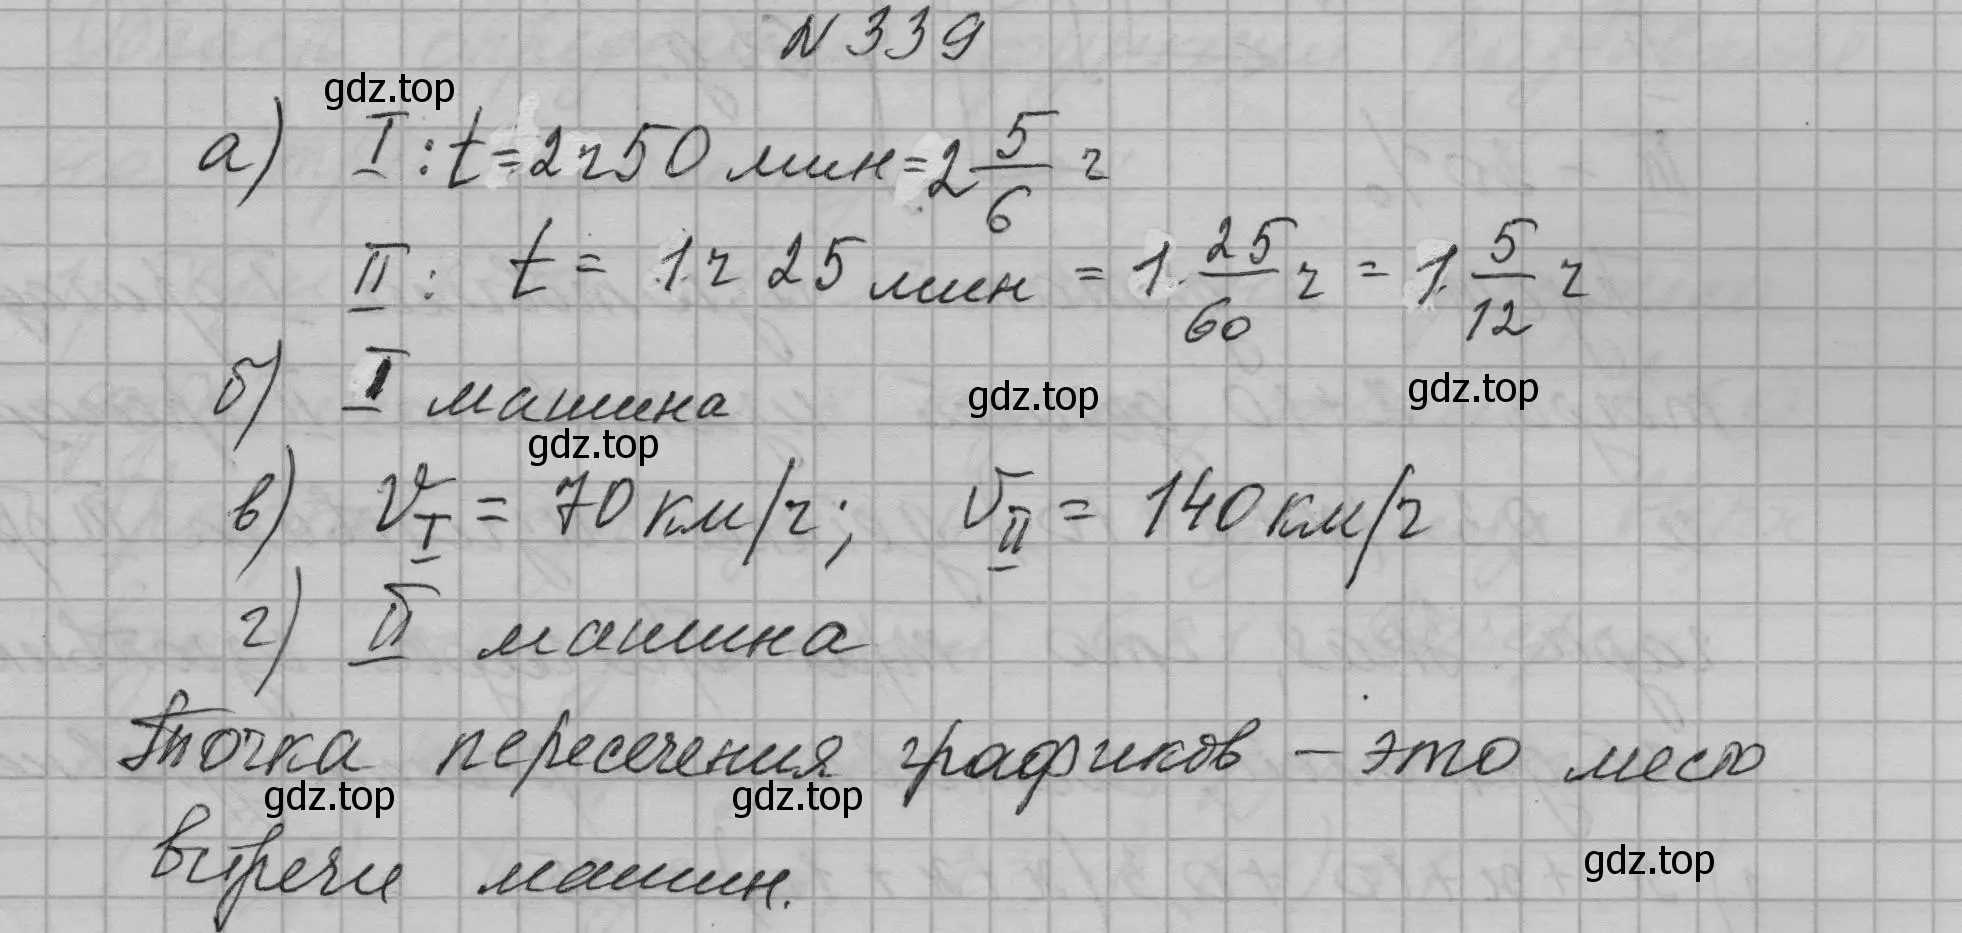 N 339
gdz.top
а) I : t = 2 ч 50 мин = 2 5/6 ч
II : t = 1 ч 25 мин = 1 25/60 ч = 1 5/12 ч
б) I машина
gdz.top
gdz.top
gdz.top
в) V_I = 70 км/ч; V_II = 140 км/ч
г) II машина
Точка пересечения графиков – это место
gdz.top
gdz.top
встречи машин.
gdz.top